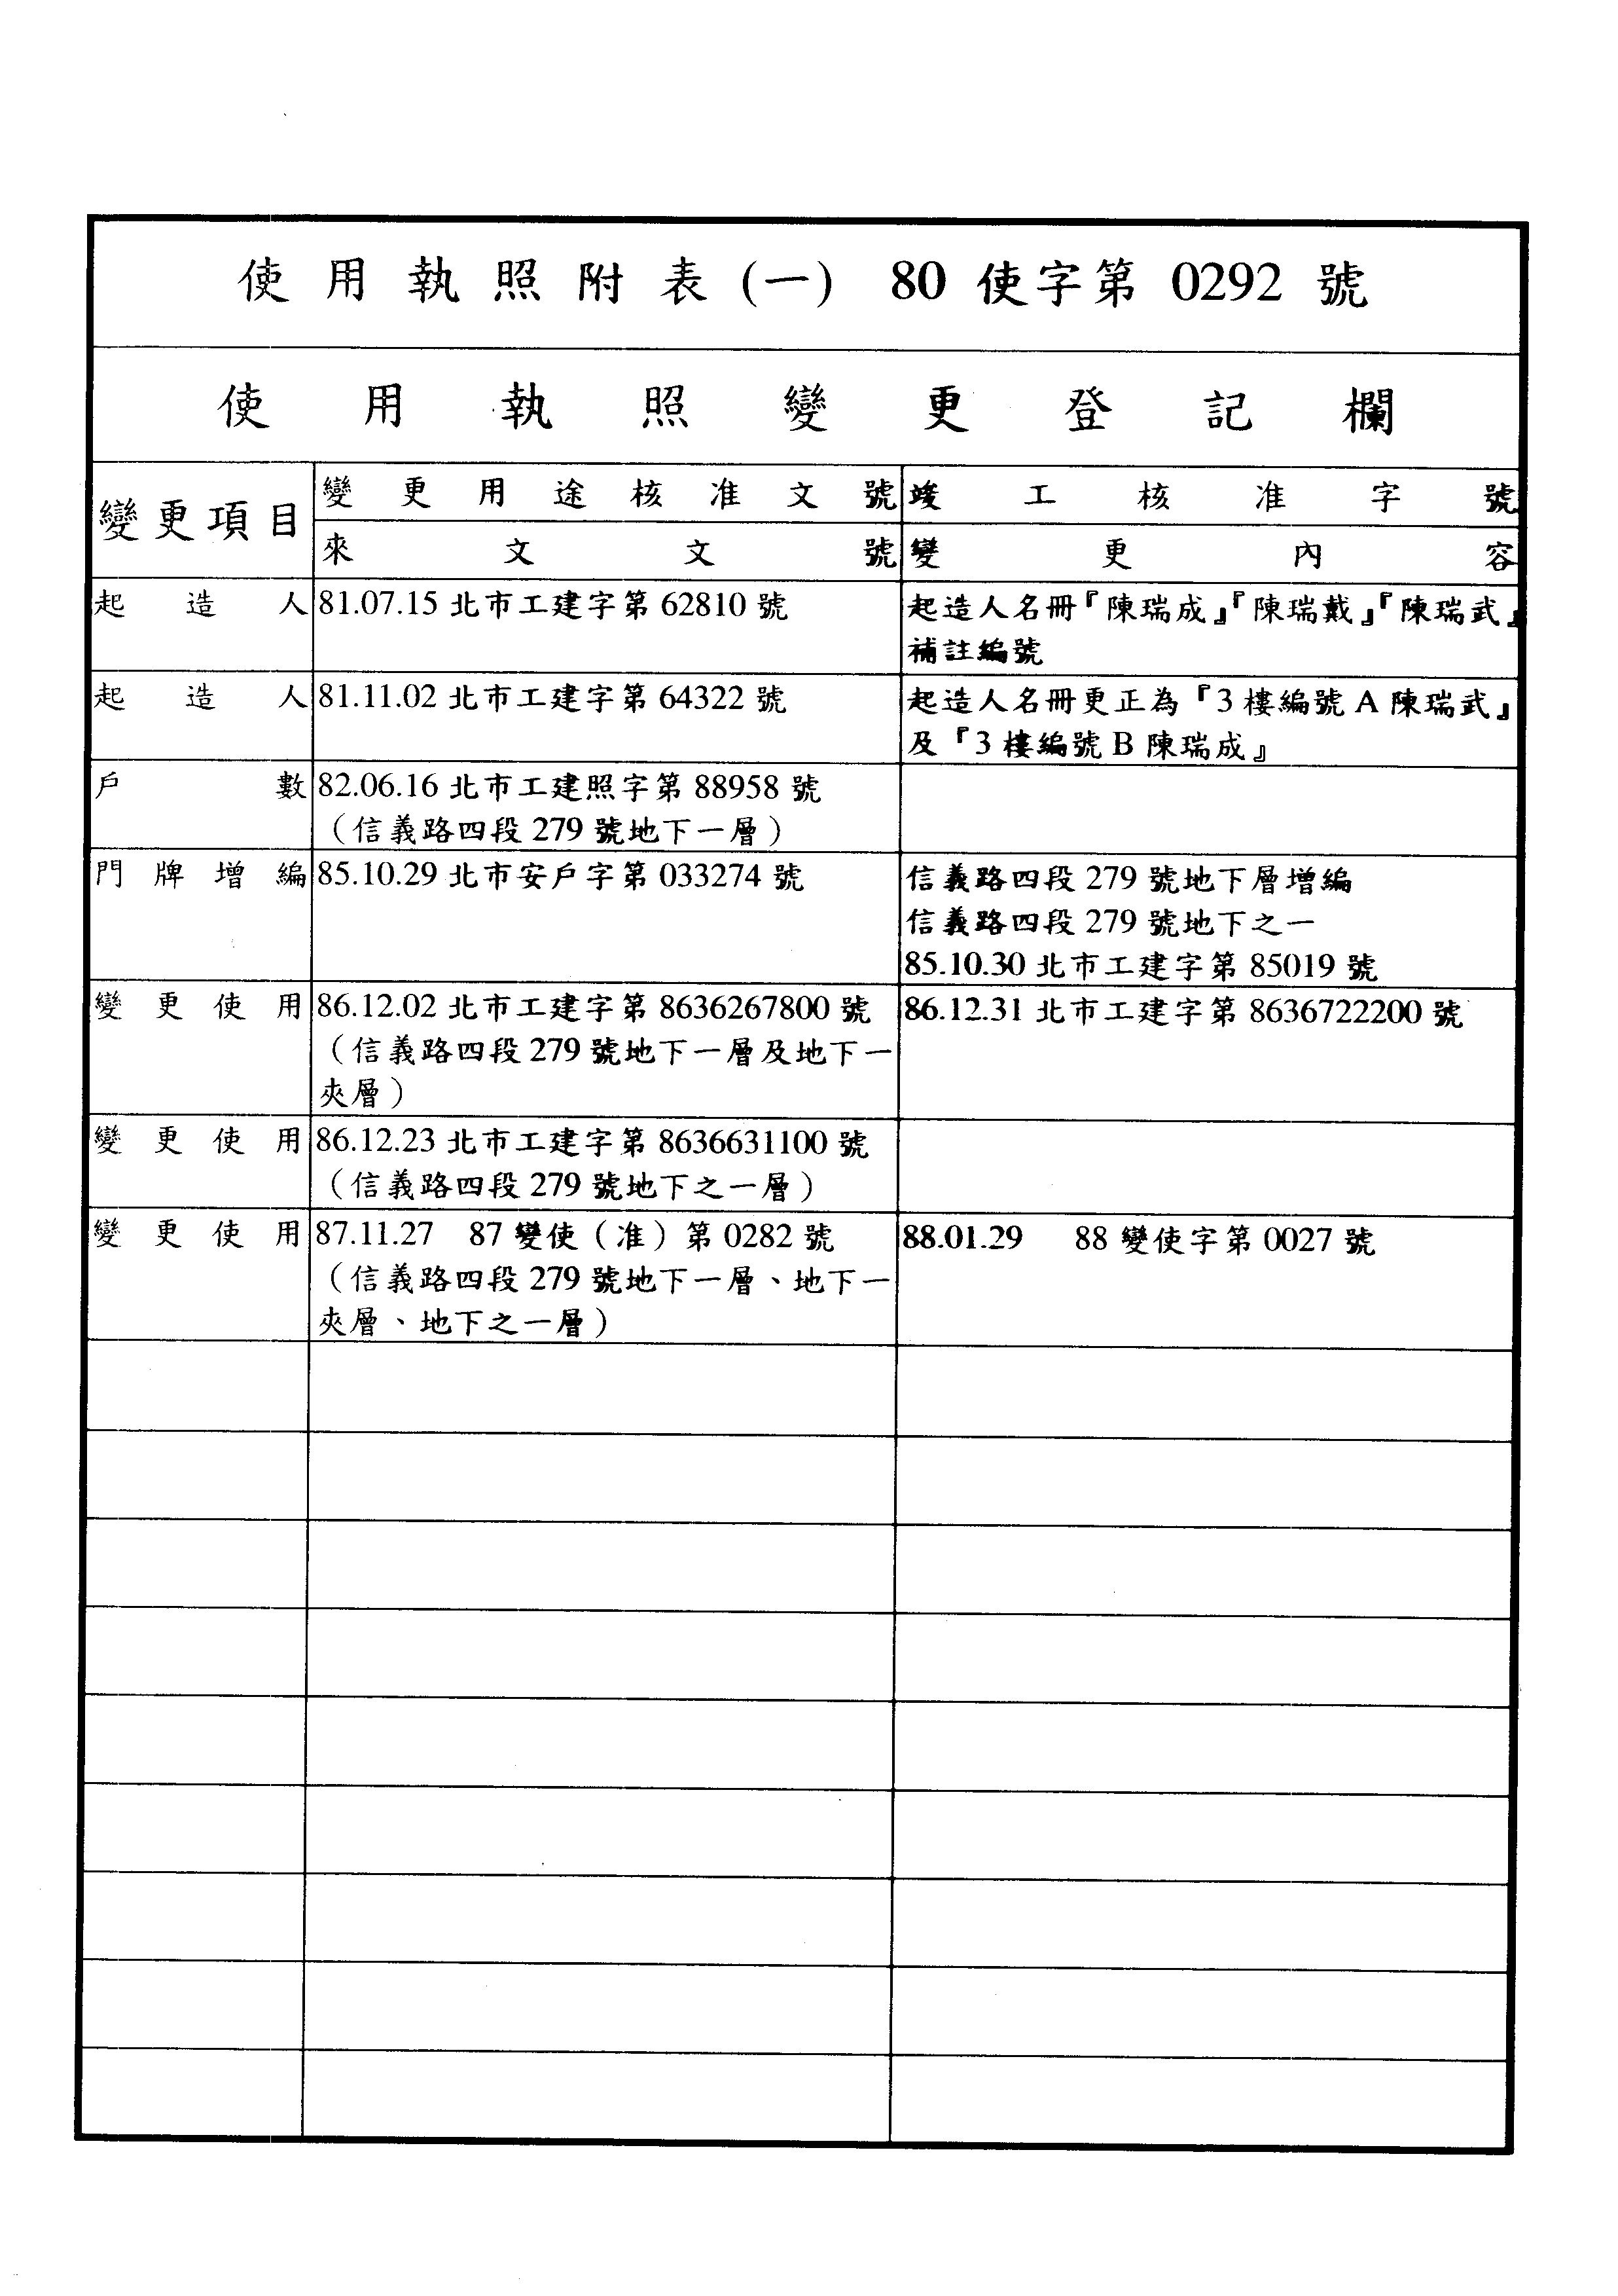 使用執照附表(一) 80使字第0292號
使用執照變更登記欄
變更項目
變更用途核准文號
竣工核准字號
來文文號
變更內容
起造人
81.07.15北市工建字第62810號
起造人名冊『陳瑞成』『陳瑞戴』『陳瑞武』
補註編號
起造人
81.11.02北市工建字第64322號
起造人名冊更正為『3樓編號A陳瑞武』
及『3樓編號B陳瑞成』
戶數
82.06.16北市工建照字第88958號
(信義路四段279號地下一層)
門牌增編
85.10.29北市安戶字第033274號
信義路四段279號地下層增編
信義路四段279號地下之一
85.10.30北市工建字第85019號
變更使用
86.12.02北市工建字第8636267800號
(信義路四段279號地下一層及地下一
夾層)
86.12.31北市工建字第8636722200號
變更使用
86.12.23北市工建字第8636631100號
(信義路四段279號地下之一層)
變更使用
87.11.27 87變使(准)第0282號
(信義路四段279號地下一層、地下一
夾層、地下之一層)
88.01.29 88變使字第0027號